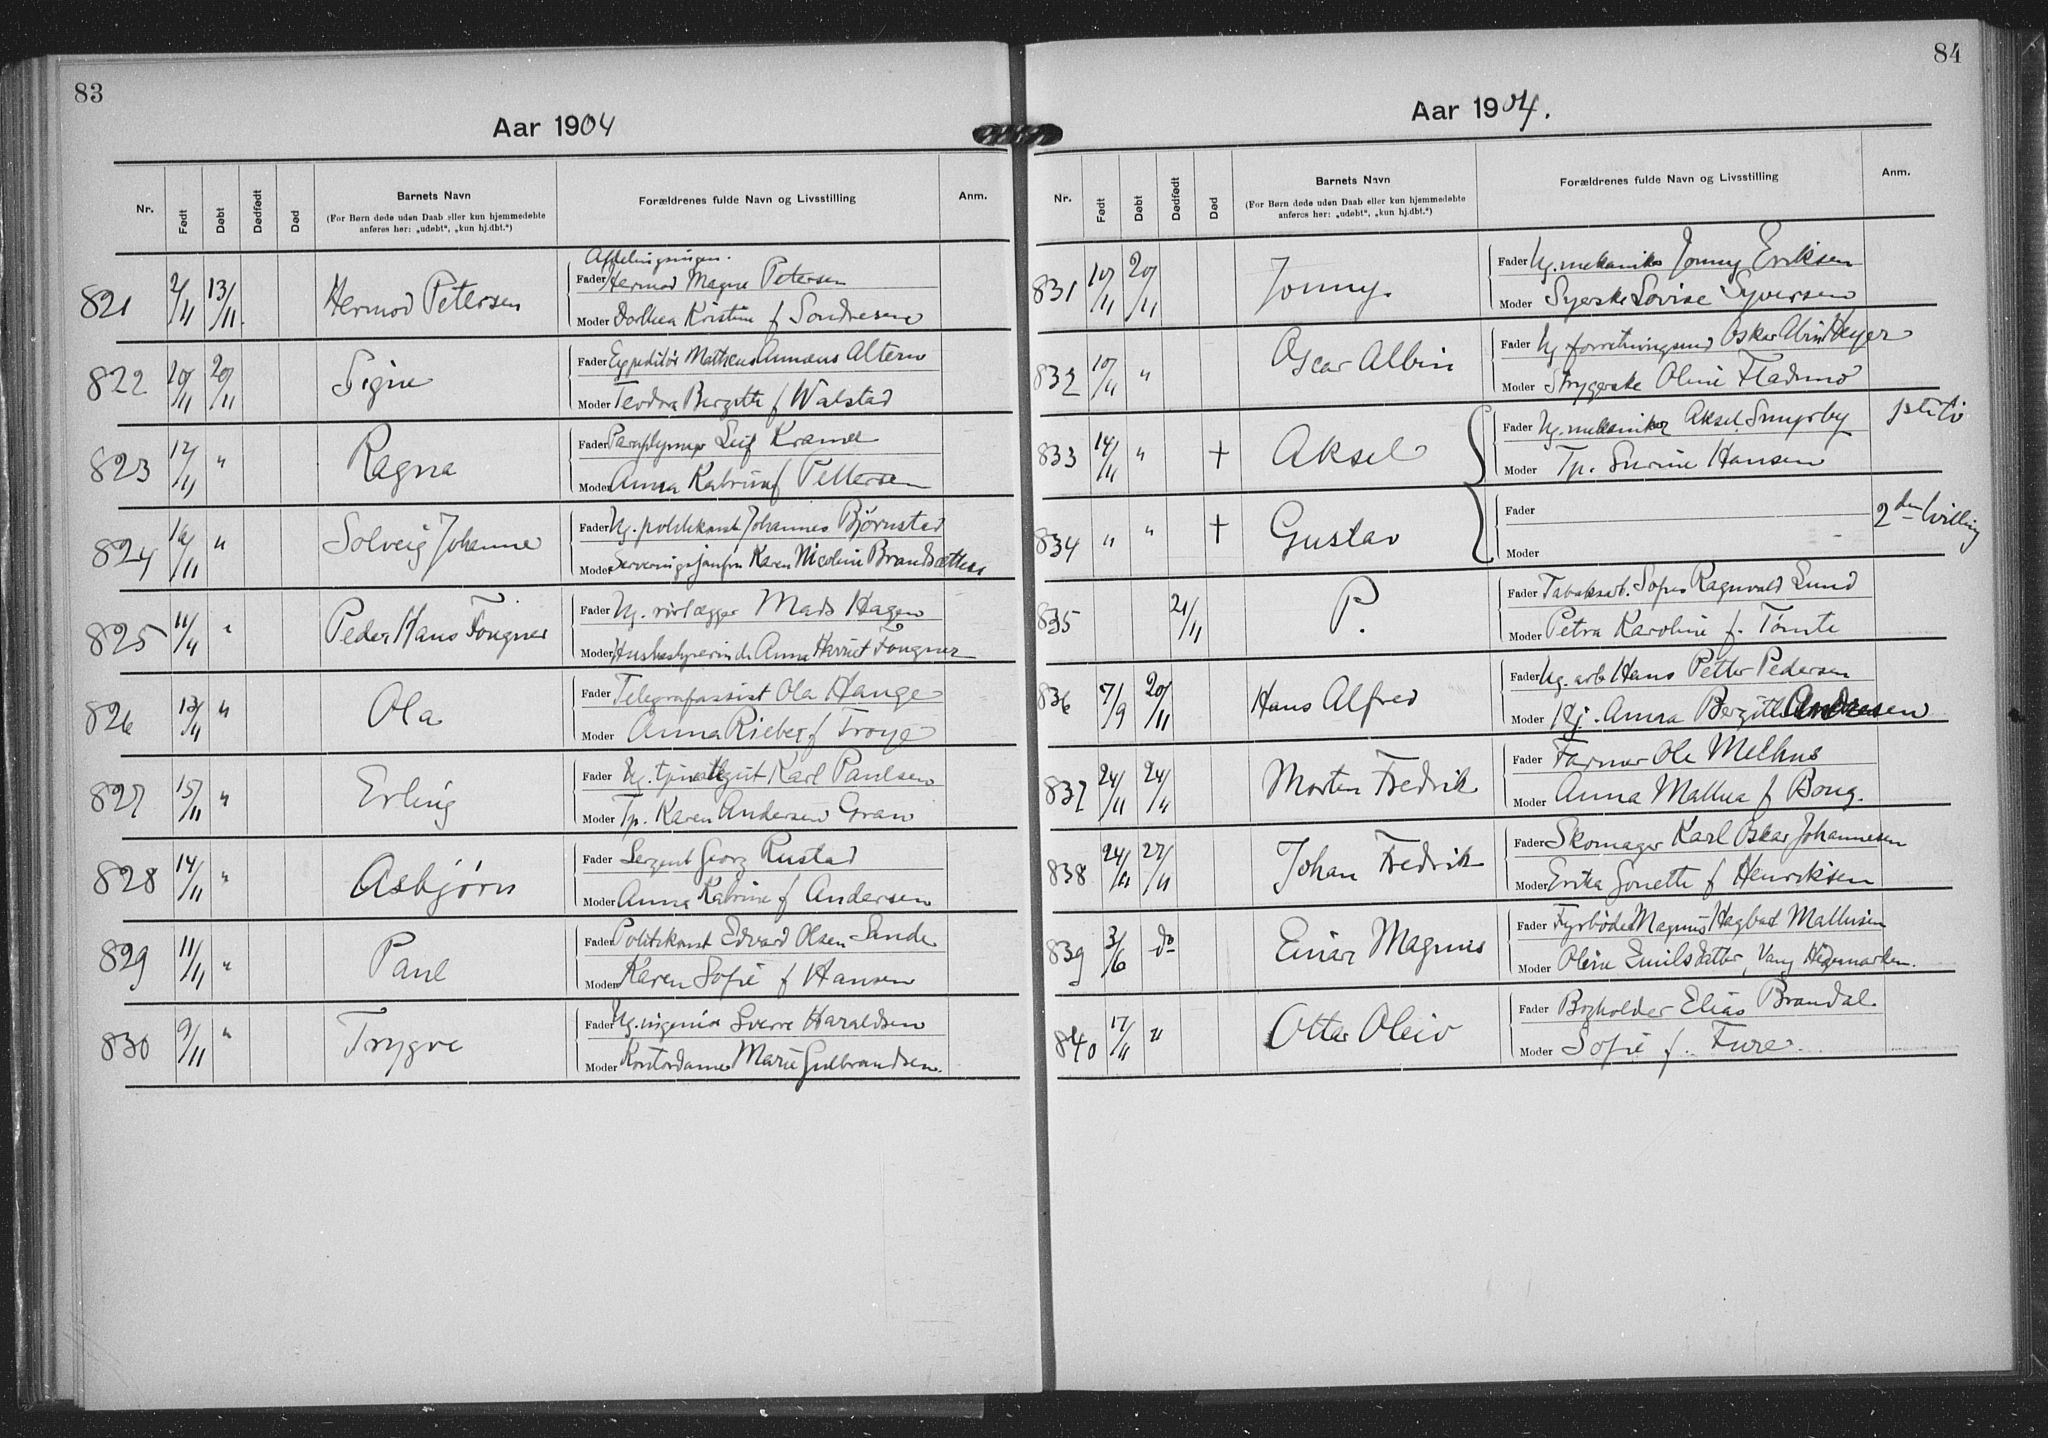 83
Aar 1904
Nr. Født Døbt Dødfødt Død Barnets Navn Forældrenes fulde Navn og Livsstilling Anm.
(For Børn døde uden Daab eller kun hjemmedøbte
anføres her: „udøbt“, „kun hj.dbt.“)
821 2/11 13/11. Hermod Petersen
Afdelingsingen.
Fader Hermod Magne Petersen
Moder Dothea Kristine f Sondresen
822 20/11 Signe
Fader Expeditør Matheus Ananias Altern
Moder Teodora Bergitte f Walstad
823 12/11 " Ragna
Fader Leif Kramer
Moder Anna Katrine f Pettersen
824 " Solveig Johanne
Fader Ug. politikonst Johannes Bjørnstad
Moder Serveringsjomfru Karen Nicoline
825 11/11 " Peder Hans Fougner
Fader Ug. rørlægger Mads Hagen
Moder Husbestyrerinde Anna Harriet Fougner
826 13/11 " Ola
Fader Telegrafassist Ola Hauge
Moder Anna Rieber f Troye
827 15/11 " Erling
Fader Ug. Karl Paulsen
Moder Tp. Karen Andersen Gran
828 14/11 " Asbjørn
Fader Sergent Georg Rustad
Moder Anna Katrine f Andersen
829 11/11 " Paul
Fader Politikonst Edvard Olsen-Sande
Moder Karen Sofie f Hansen
830 9/11 " Trygve
Fader Ug. ingeniør Sverre Haraldsen
Moder Kontordame Marie Gulbrandsen.
84
Aar 1904.
Nr. Født Døbt Dødfødt Død Barnets Navn Forældrenes fulde Navn og Livsstilling Anm.
(For Børn døde uden Daab eller kun hjemmedøbte
anføres her: „udøbt“, „kun hj.dbt.“)
831 10/11 20/11 Jonny.
Fader Ug. mekaniker Jonny Eriksen
Moder Syerske Lovise Syversen
832 10/11 " Oscar Albin
Fader Ug forretningsmd Oskar Heyer
Moder Strygerske Oline Fladmo
833 14/11 " + Aksel
Fader Ug. mekaniker Aksel Smugsby
Moder Tp. Hansen
834 " " + Gustav 2den tvilling
Fader
Moder
835 21/11 P.
Fader Tabaksarb. Sofus Ragnvald Lund
Moder Petra Karoline f. Tømte
836 7/9 20/11 Hans Alfred
Fader Ug. arb Hans Petter Pedersen
Moder Pij. Anna Bergitte Andresen
837 24/11 24/11 Morten Fredrik
Fader Farmer Ole Melhus
Moder Anna Mathea f Bong.
838 24/11 27/11 Johan Fredrik
Fader Skomager Karl Oskar Johannesen
Moder Erika f Henriksen
839 3/6 do Einar Magnus
Fader Fyrbøder Magnus Hagbart Mathisen
Moder Oline Emilsdatter, Vang Hedemarken.
840 17/11 " Otter Oleiv
Fader Bogholder Elias Brandal.
Moder Sofie f. Fure.